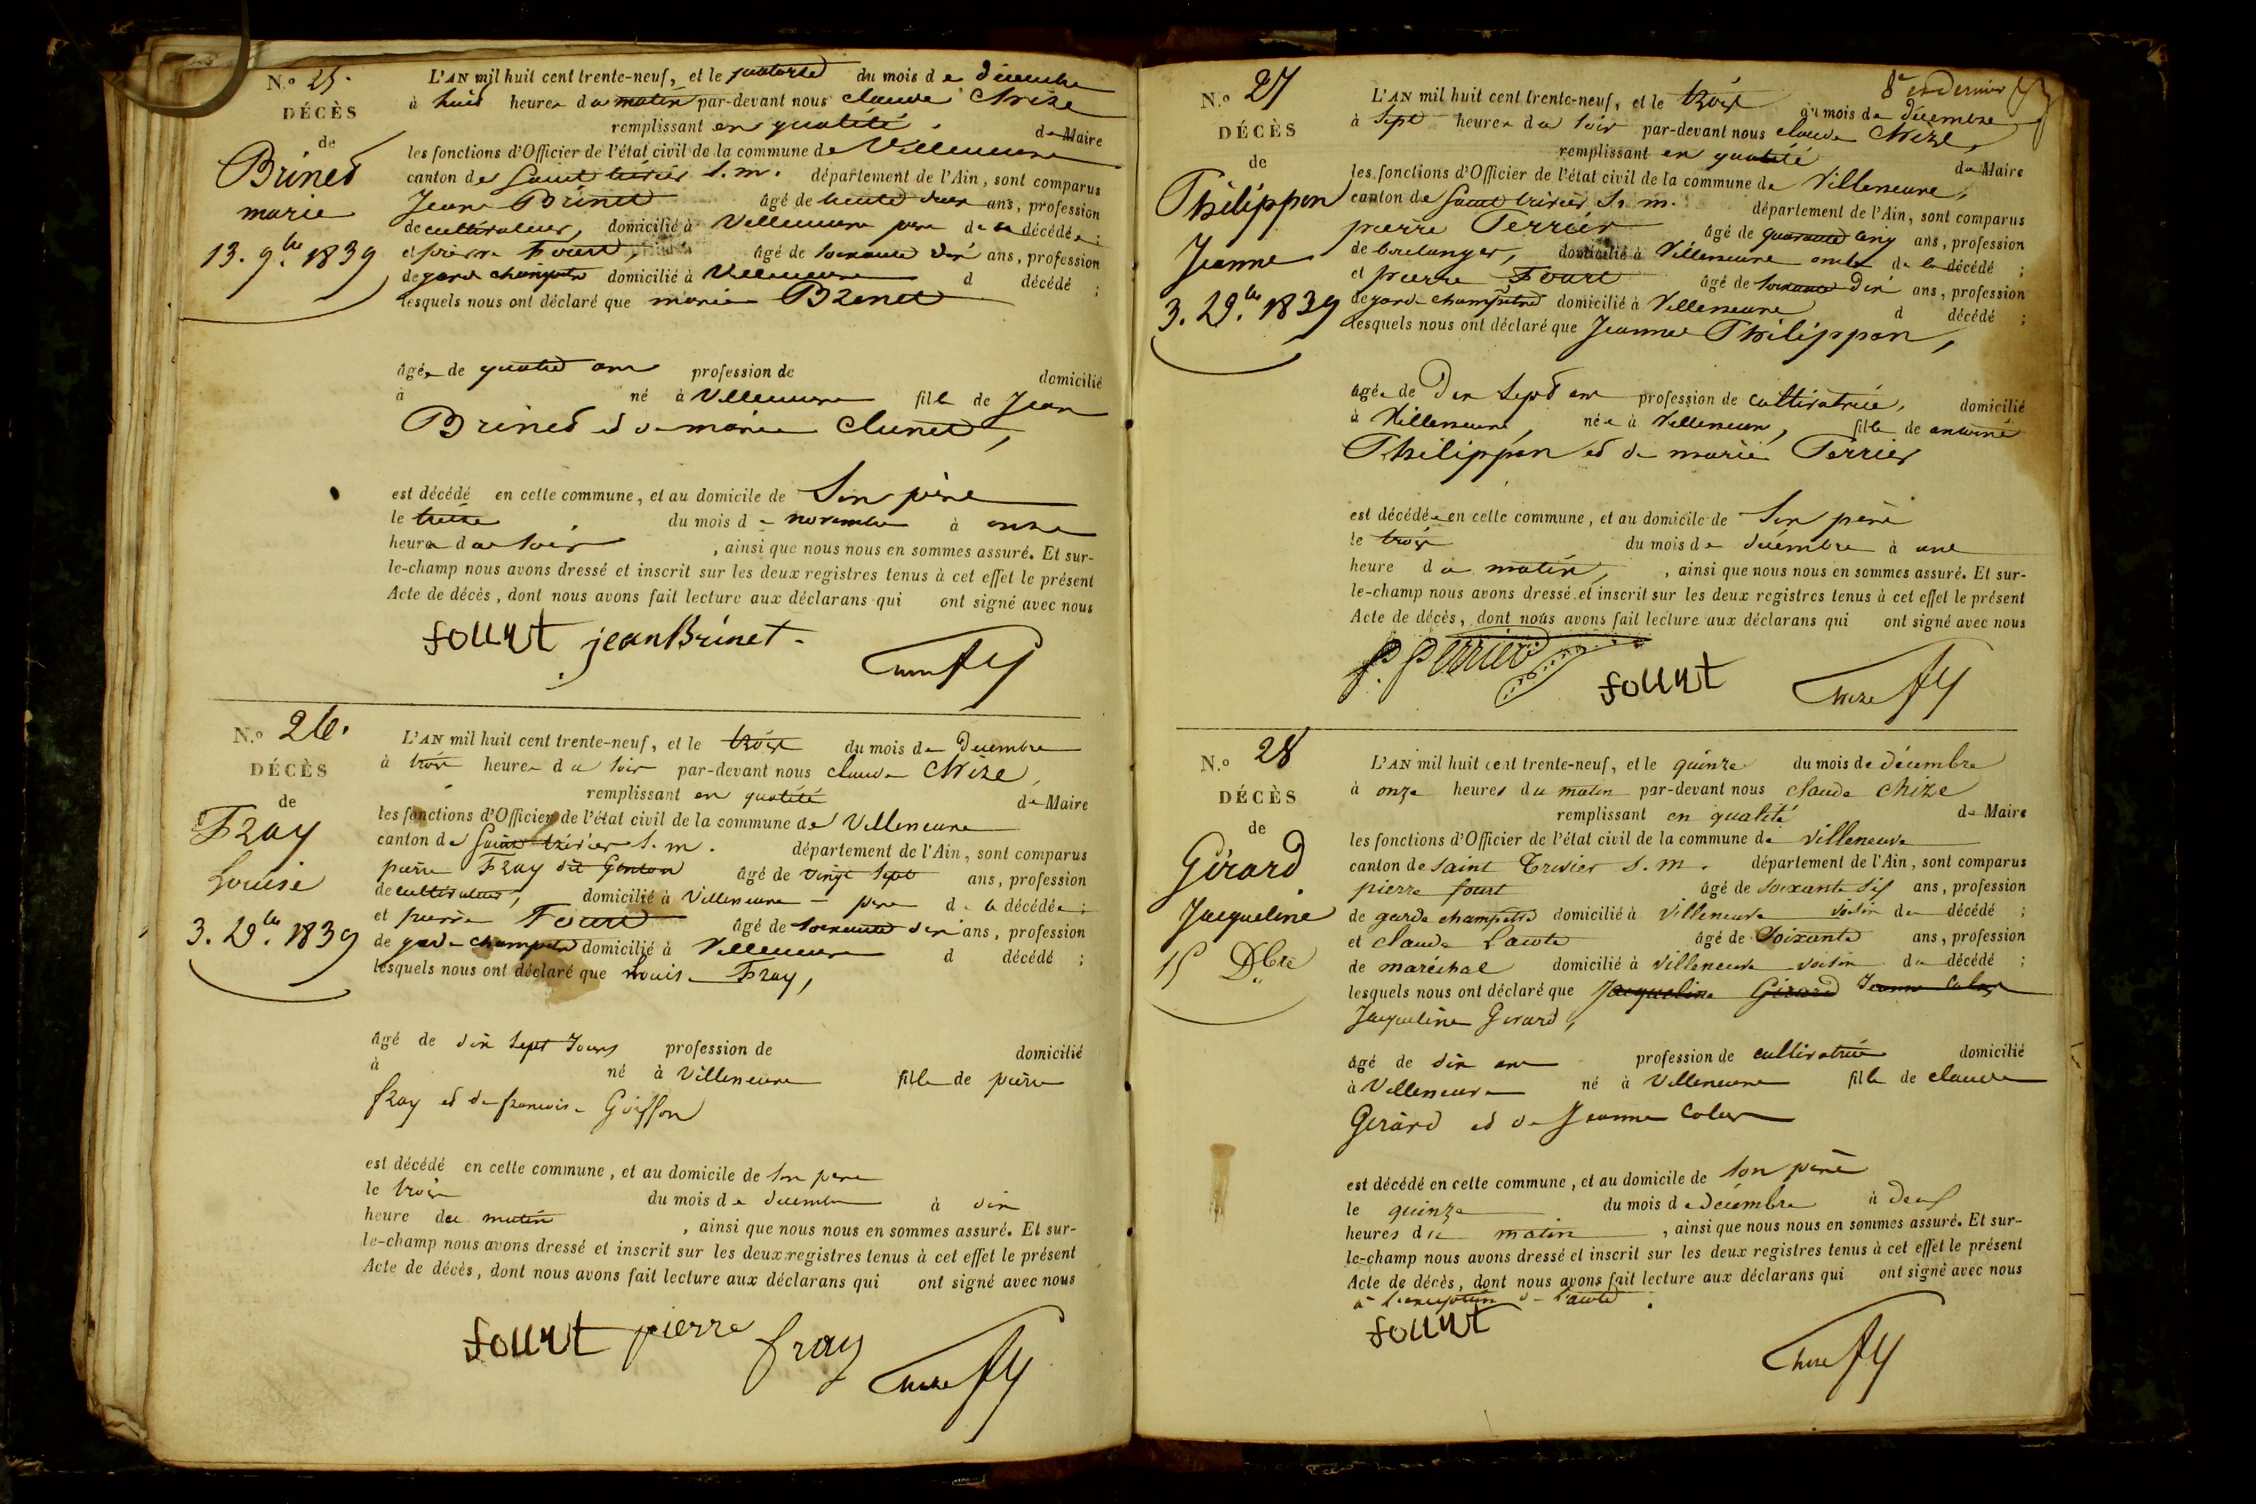 N.º 25.
DÉCÈS
de
Brinet
marie
13. 9.bre 1839
L'AN mil huit cent trente-neuf, et le quatorze du mois de décembre
à huit heures du matin par-devant nous claude Chize
remplissant en qualité de Maire
les fonctions d'Officier de l'état civil de la commune de Villeneuve
canton de Saint trivier S. m. département de l'Ain, sont comparus
Jean Brinet âgé de trente deux ans, profession
de cultivateur, domicilié à Villeneuve père de la décédée;
et pierre Fourt, âgé de soixante dix ans, profession
de garde champetre domicilié à Villeneuve d décédé ;
lesquels nous ont déclaré que marie Brinet
âgée de quatre ans profession de domicilié
à né à Villeneuve fille de Jean
Brinet et de marie Clunet,
est décédé en cette commune, et au domicile de Son père
le treize du mois de novembre à onze
heure du soir , ainsi que nous nous en sommes assuré. Et sur-
le-champ nous avons dressé et inscrit sur les deux registres tenus à cet effet le présent
Acte de décès, dont nous avons fait lecture aux déclarans qui ont signé avec nous
fourt jean Brinet
Chize
N.º 26.
DÉCÈS
de
Fray
Louise
3. xb.re 1839
L'AN mil huit cent trente-neuf, et le trois du mois de Decembre
à trois heures du soir par-devant nous claude Chize,
remplissant en qualité de Maire
les fonctions d'Officier de l'état civil de la commune de Villeneuve
canton de Saint trivier S. m. département de l'Ain, sont comparus
pierre Fray dit Genton âgé de vingt sept ans, profession
de cultivateur, domicilié à Villeneuve père de la décédée;
et pierre Fourt âgé de soixante dix ans, profession
de garde champetre domicilié à Villeneuve d décédé ;
lesquels nous ont déclaré que Louise Fray,
âgé de dix sept Jours profession de domicilié
à né à Villeneuve fille de pierre
fray et de francoise Goiffon
est décédé en cette commune, et au domicile de Son père
le trois du mois de decembre à dix
heure du matin , ainsi que nous nous en sommes assuré. Et sur-
le-champ nous avons dressé et inscrit sur les deux registres tenus à cet effet le présent
Acte de décès, dont nous avons fait lecture aux déclarans qui ont signé avec nous
fourt pierre fray
Chize
8e et dernier
N.º 27
DÉCÈS
de
Philippon
Jeanne
3. xb.re 1839
L'AN mil huit cent trente-neuf, et le trois du mois de décembre
à sept heures du soir par-devant nous claude Chize,
remplissant en qualité de Maire
les fonctions d'Officier de l'état civil de la commune de Villeneuve,
canton de Saint trivier S. m. département de l'Ain, sont comparus
pierre Perrier âgé de quarante cinq ans, profession
de boulanger, domicilié à Villeneuve oncle de la décédé ;
et pierre Fourt âgé de soixante Dix ans, profession
de garde champêtre domicilié à Villeneuve d décédé ;
lesquels nous ont déclaré que Jeanne Philippon,
âgée de Dix sept ans profession de cultivatrice, domicilié
à Villeneuve, née à Villeneuve, fille de antoine
Philippon et de marie Perrier
est décédée en cette commune, et au domicile de Son père
le trois du mois de décembre à une
heure du matin, , ainsi que nous nous en sommes assuré. Et sur-
le-champ nous avons dressé et inscrit sur les deux registres tenus à cet effet le présent
Acte de décès, dont nous avons fait lecture aux déclarans qui ont signé avec nous
P. Perrier
fourt Chize
N.º 28
DÉCÈS
de
Girard
Jacqueline
15 Dbre
L'AN mil huit cent trente-neuf, et le quinze du mois de décembre
à onze heures du matin par-devant nous claude chize
remplissant en qualité de Maire
les fonctions d'Officier de l'état civil de la commune de villeneuve
canton de Saint Trivier S. m. département de l'Ain, sont comparus
pierre fourt âgé de soixante dix ans, profession
de garde champetre domicilié à villeneuve voisin du décédé ;
et claude Lacote âgé de Soixante ans, profession
de maréchal domicilié à villeneuve voisin du décédé ;
lesquels nous ont déclaré que Jacqueline Girard Jeanne Colas
Jacqueline Girard,
âgé de dix ans profession de cultivatrice domicilié
à Villeneuve né à Villeneuve fille de claude
Girard et de Jeanne Colas
est décédé en cette commune, et au domicile de Son père
le quinze du mois de Décembre à deux
heures du matin , ainsi que nous nous en sommes assuré. Et sur-
le-champ nous avons dressé et inscrit sur les deux registres tenus à cet effet le présent
Acte de décès, dont nous avons fait lecture aux déclarans qui ont signé avec nous
à l'exception de Lacote.
fourt
Chize